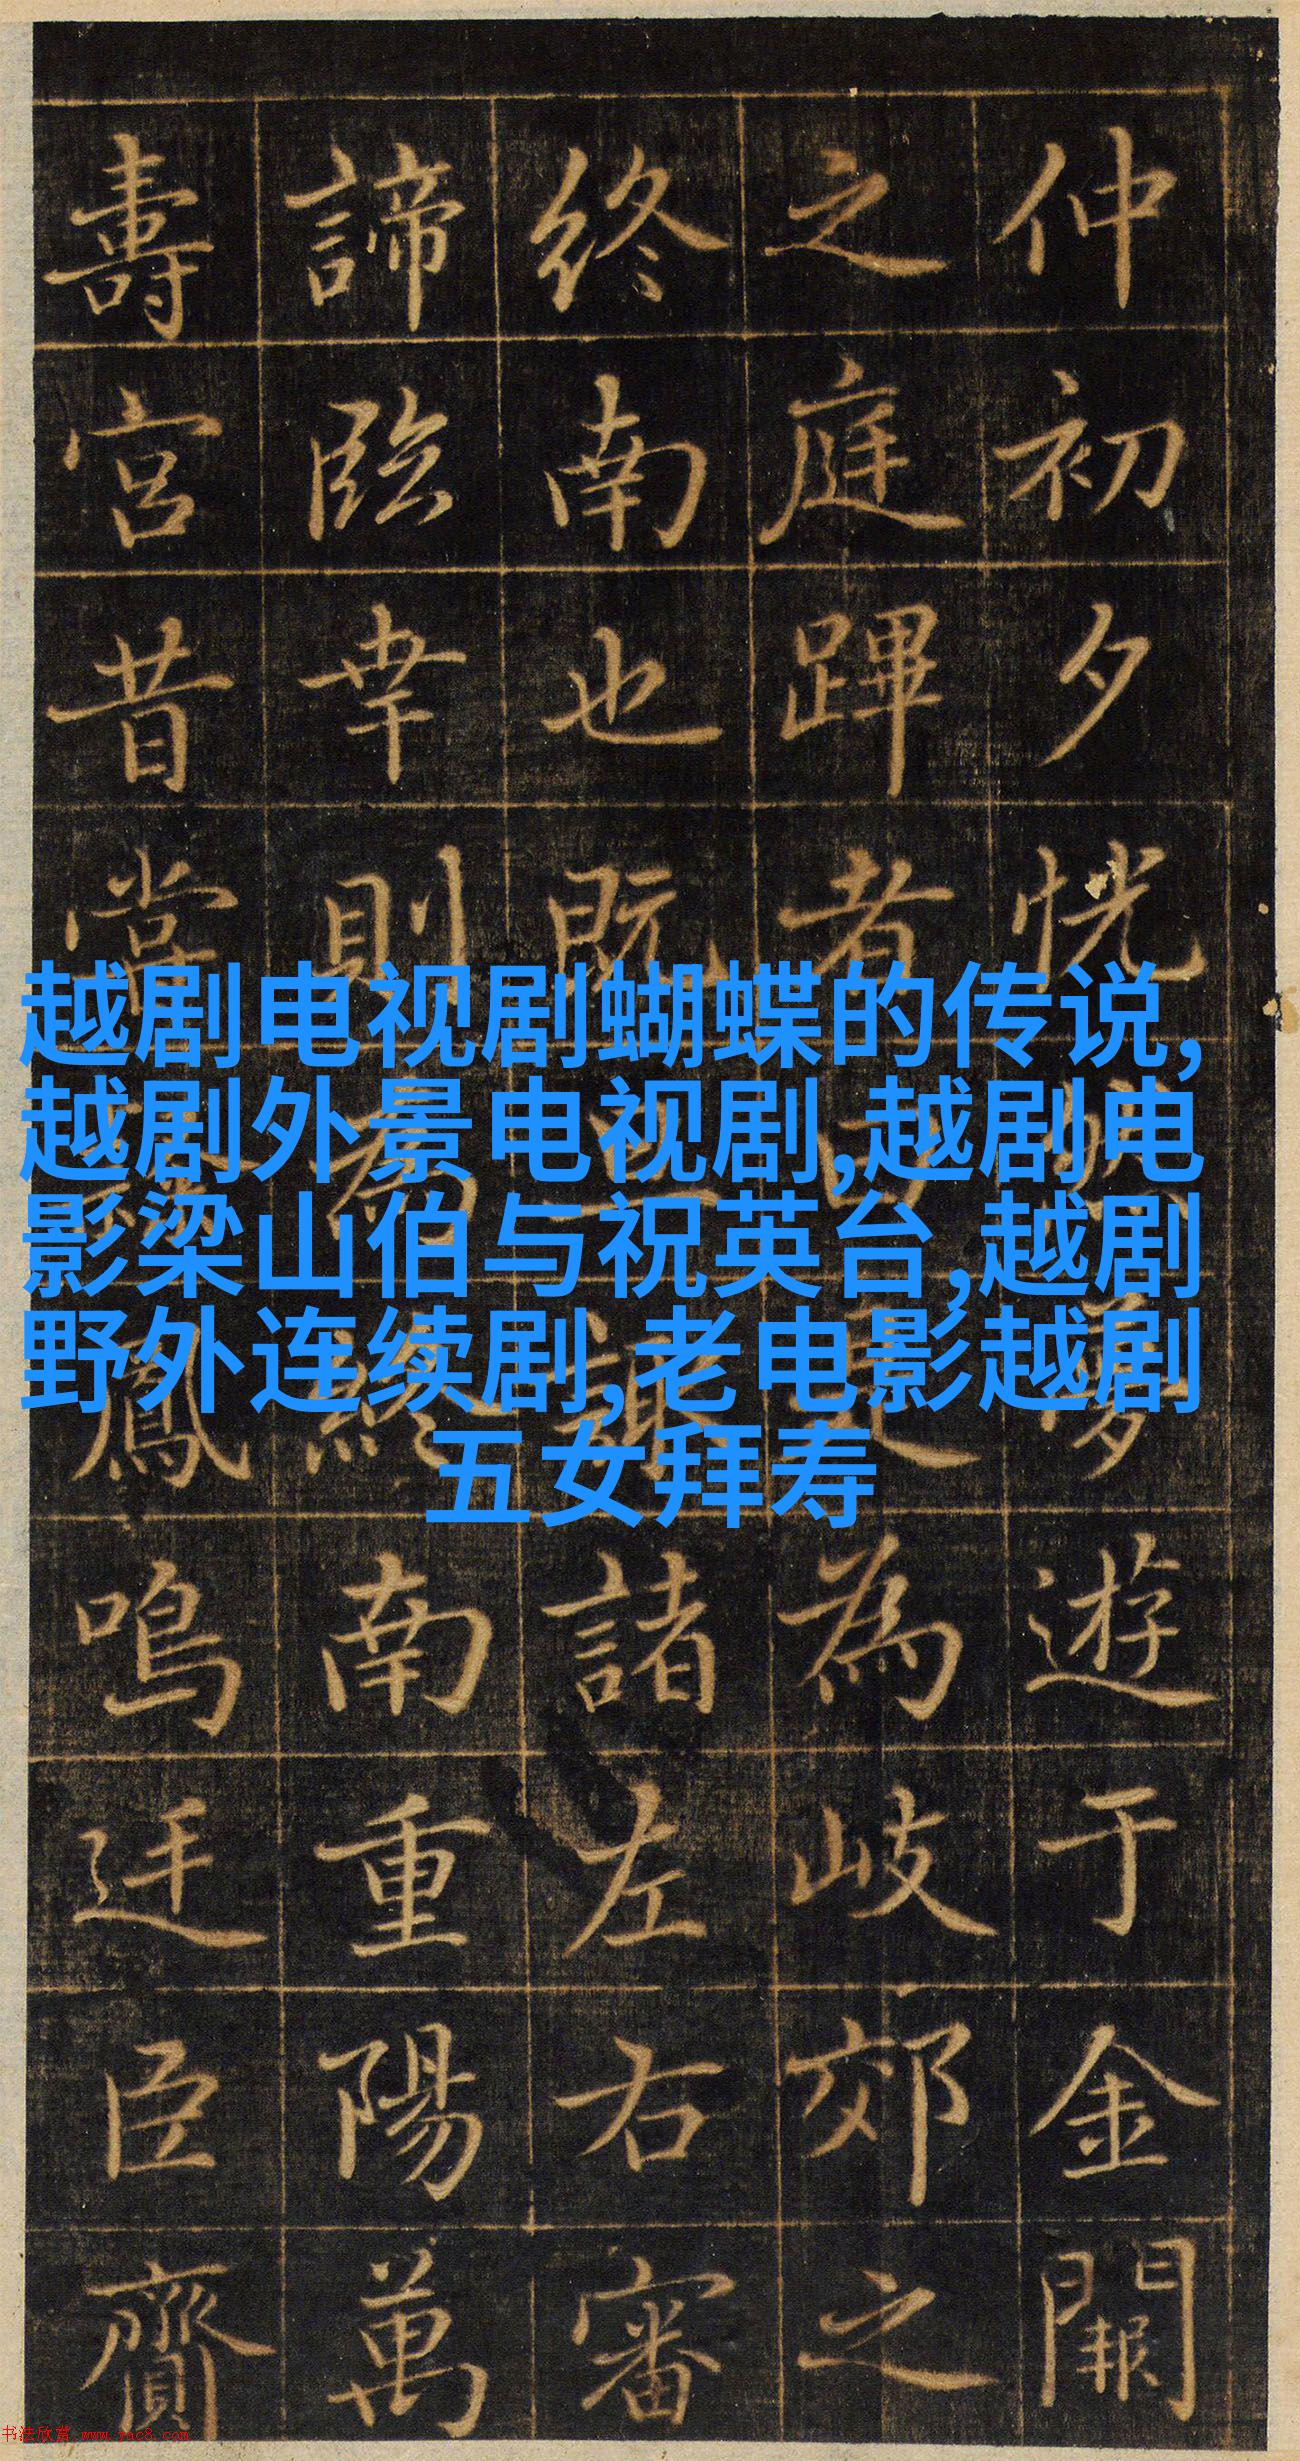 仲初夕恍然夢遊于金闕
之庭蹕者為岐郊之
終南也既諸左右審
諦臨幸則為終南重陽萬
壽宮昔嘗鳳鳴迓臣齎
越剧电视剧蝴蝶的传说,
越剧外景电视剧,越剧电
影梁山伯与祝英台,越剧
野外连续剧,老电影越剧
五女拜寿
书法欣赏 www.yac8.com